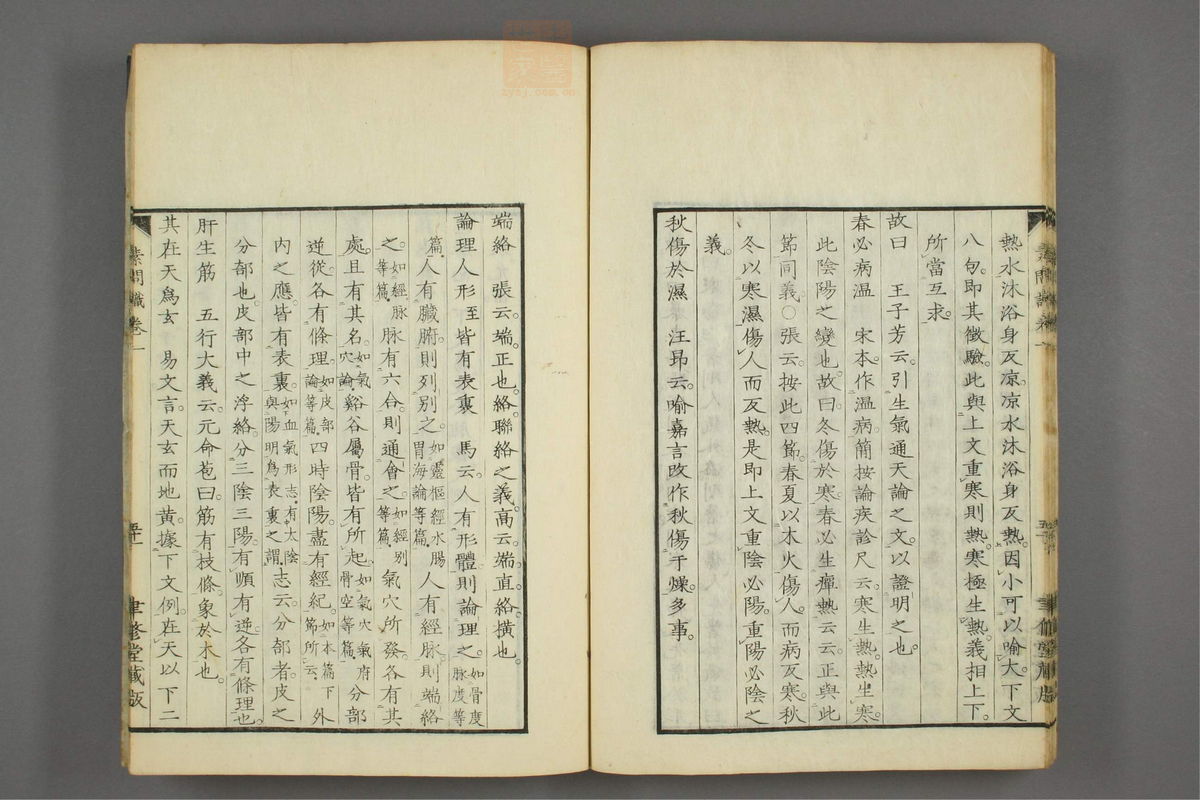 熱水沐浴身反凉。凉水沐浴身反熱。因小可以喻大。下文
八句。即其徵驗。此與上文重寒則熱。寒極生熱。義相上下。
所當互求。
故曰　王子芳云。引生氣通天論之文。以證明之也。
春必病溫　宋本。作温病。簡按論疾診尺云。寒生熱。熱生寒。
此陰陽之變也。故曰。冬傷於寒。春必生癉熱云云。正與此
節同義。○張云。按此四節。春夏以木火傷人。而病反寒。秋
冬以寒濕傷人而反熱。是即上文重陰必陽。重陽必陰之
義。
秋傷於濕　汪昂云。喻嘉言改作秋傷于燥。多事。
端絡　張云。端。正也。絡。聯絡之義。高云。端。直。絡。橫也。
論理人形至皆有表裏　馬云。人有形體。則論理之。如骨度脉度等
篇。人有臟腑。則列別之。如靈樞經水腸胃海論等篇。人有經脉。則端絡
之。如經脉等篇。脉有六合。則通會之。如經別等篇。氣穴所發。各有其
處。且有其名。如氣穴論。谿谷屬骨。皆有所起。如氣穴氣府骨空等篇。分部
逆從。各有條理。如皮部論等篇。四時陰陽。盡有經紀。如本篇下節所云。外
內之應。皆有表裏。如血氣形志。有太陰與陽明爲表裏之謂。志云。分部者。皮之
分部也。皮部中之浮絡。分三陰三陽。有順有逆。各有條理也。
肝生筋　五行大義云。元命苞曰。筋有枝條。象於木也。
其在天爲玄　易文言。天玄而地黃。據下文例。在天以下二
素問識卷一
聿修堂藏版